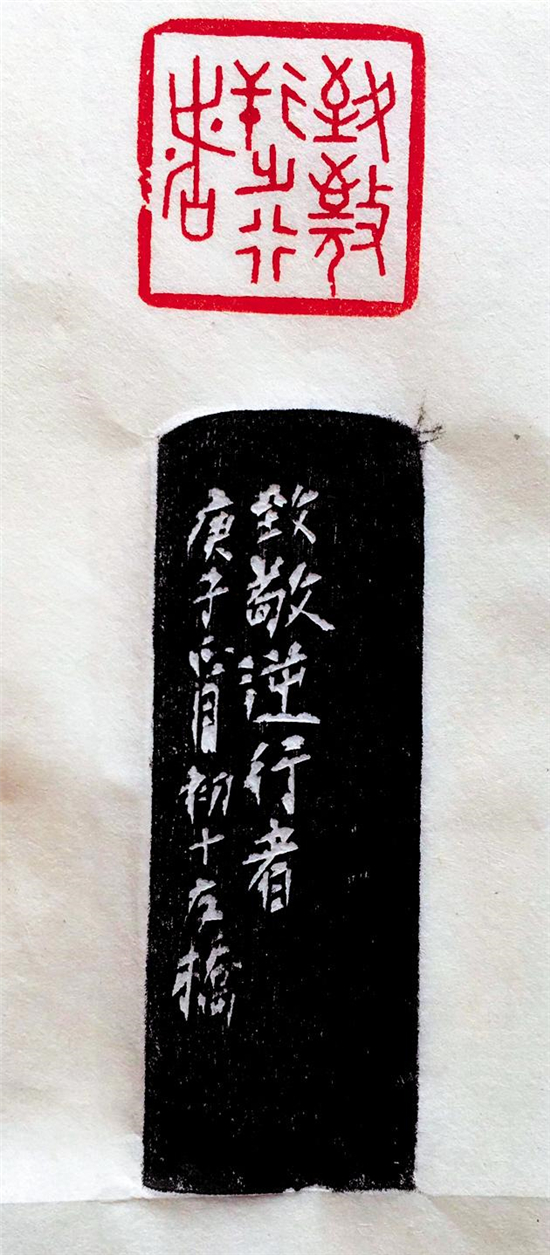 致敬
逆行
者
致敬逆行者
庚子正月初十左桥